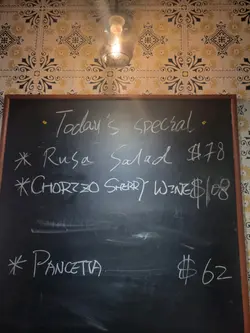 Today's special
* Rusa Salad $78
* CHORIZO SHERRY WINE $108
* PANCETTA $62